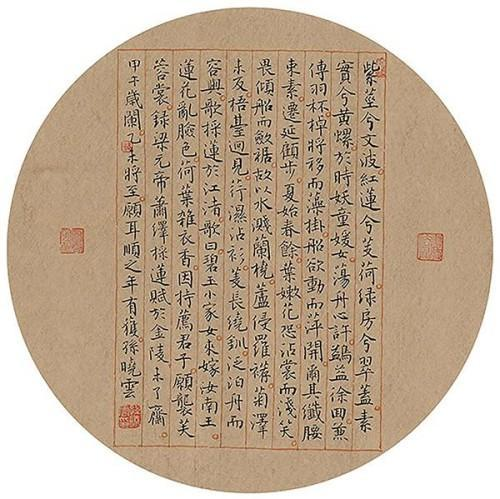 紫莖兮文波紅蓮兮芰荷緑房兮翠蓋素
實兮黃螺於時妖童媛女蕩舟心許鷁首徐回兼
傳羽杯棹將移而藻掛船欲動而萍開爾其纖腰
束素遷延顧步夏始春餘葉嫩花恐沾裳而淺笑
畏傾船而斂裾故以水濺蘭橈蘆侵羅䙓菊澤
未反梧臺迥見荇濕沾衫菱長繞釧泛泊舟而
容與歌採蓮於江渚歌曰碧玉小家女來嫁汝南王
蓮花亂臉色荷葉雜衣香因持薦君子願襲芙
蓉裳録梁元帝蕭繹採蓮賦於金陵未了齋
甲午歲閏乙未將至願耳順之年有獲孫曉雲